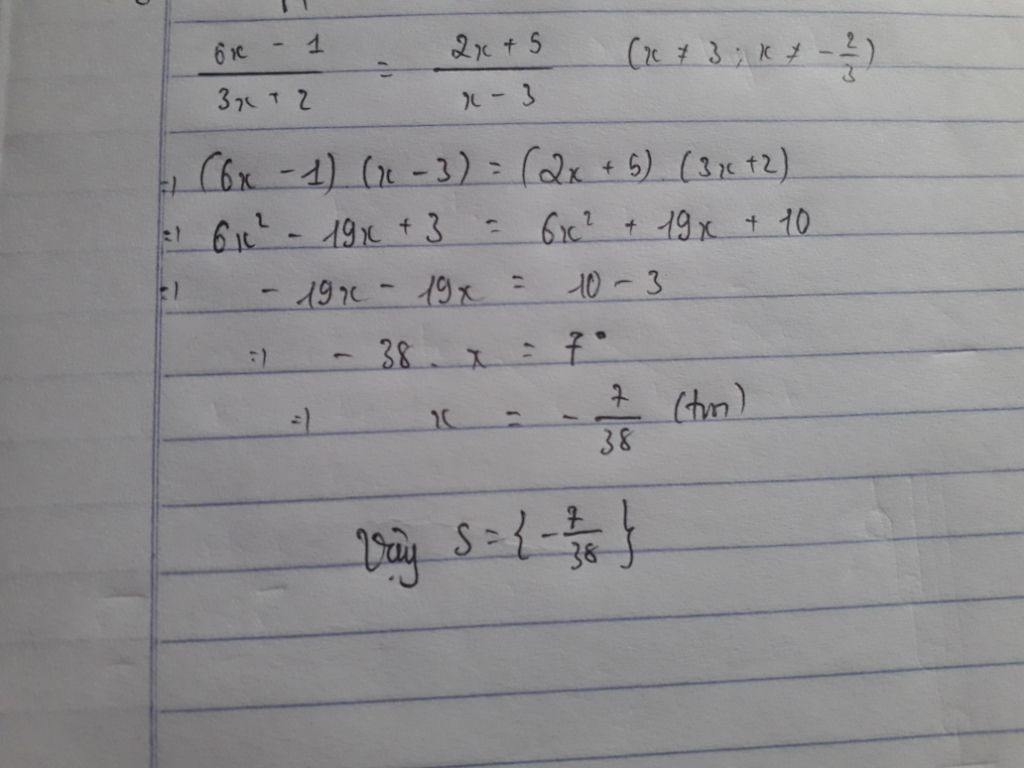 (6x - 1)/(3x + 2) = (2x + 5)/(x - 3) (x ≠ 3; x ≠ -2/3)
=> (6x - 1) (x - 3) = (2x + 5) (3x + 2)
=> 6x² - 19x + 3 = 6x² + 19x + 10
=> - 19x - 19x = 10 - 3
=> - 38 . x = 7
=> x = - 7/38 (tm)
Vậy S = {- 7/38}